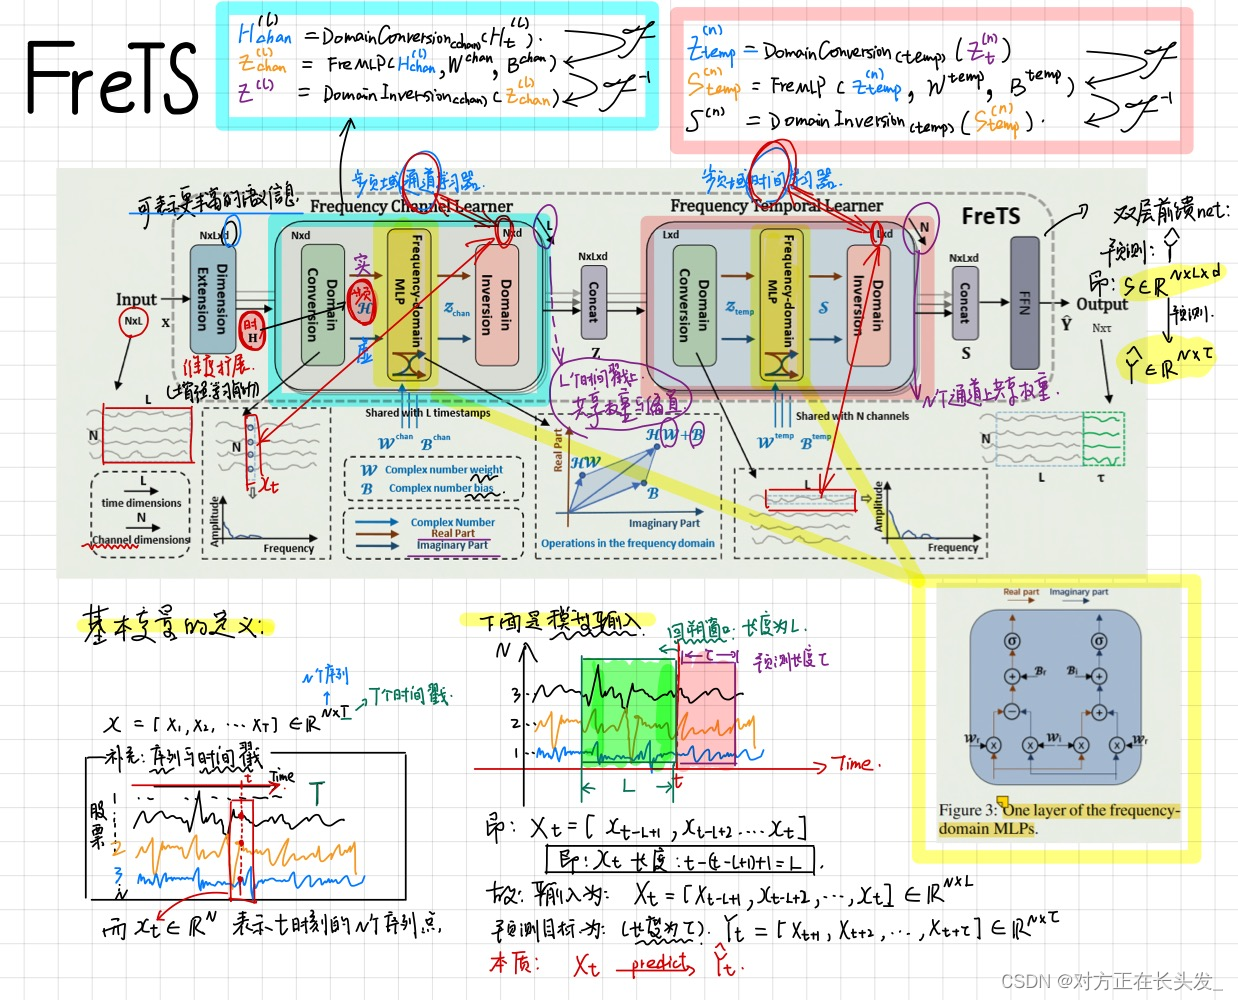 FreTS
H_chan^(l) = DomainConversion(chan)(H_t^(l)).
Z_chan^(l) = FreMLP(H_chan^(l), W^chan, B^chan)
Z^(l) = DomainInversion(chan)(Z_chan^(l))
F
F^-1
Z_temp^(n) = DomainConversion(temp)(Z_t^(n))
S_temp^(n) = FreMLP(Z_temp^(n), W^temp, B^temp)
S^(n) = DomainInversion(temp)(S_temp^(n)).
F
F^-1
频域通道学习器.
频域时间学习器.
可表示更丰富的语义信息
Frequency Channel Learner
Frequency Temporal Learner
FreTS
双层前馈net:
预测: Ŷ
即: S∈R^N×L×d
预测.
Ŷ∈R^N×τ
Input
NxL
x
NxLxd
Dimension Extension
时
H
维度扩展.
(增强学习能力)
Nxd
Domain Conversion
实
频
H
虚
Frequency-domain MLP
Z_chan
Nxd
Domain Inversion
L
NxLxd
Concat
Z
Lxd
Domain Conversion
Z_temp
Frequency-domain MLP
S
Lxd
Domain Inversion
N
NxLxd
Concat
S
FFN
Output
Ŷ
Nxτ
L个时间戳上
共享权重与偏置
N个通道上共享权重.
Shared with L timestamps
W^chan B^chan
Shared with N channels
W^temp B^temp
L
N
L
time dimensions
N
Channel dimensions
N
x_t
Amplitude
Frequency
W Complex number weight
B Complex number bias
Complex Number
Real Part
Imaginary Part
Real Part
HW
HW+B
B
Imaginary Part
Operations in the frequency domain
L
Amplitude
Frequency
N
L
τ
Real part
Imaginary part
σ
σ
B_r
B_i
W_r
W_i
W_r
Figure 3: One layer of the frequency-
domain MLPs.
基本变量的定义:
N个序列
T个时间戳.
X = [X1, X2, ... XT] ∈R^N×T
补充: 序列与时间戳
Time
t
T
股票
1
2
3
N
而 x_t∈R^N 表示t时刻的N个序列点.
下面是模型输入
回溯窗口: 长度为L.
τ
预测长度τ
N
3
2
1
L
t
Time.
即: Xt = [x_t-L+1, x_t-L+2 .... x_t]
即: Xt 长度: t-(t-L+1)+1 = L.
故: 输入为: Xt = [X_t-L+1, x_t-L+2, ..., x_t] ∈R^N×L
预测目标为: (长度为τ). Yt = [X_t+1, X_t+2, ..., X_t+τ] ∈R^N×τ
本质: Xt predict Ŷt.
CSDN @对方正在长头发_